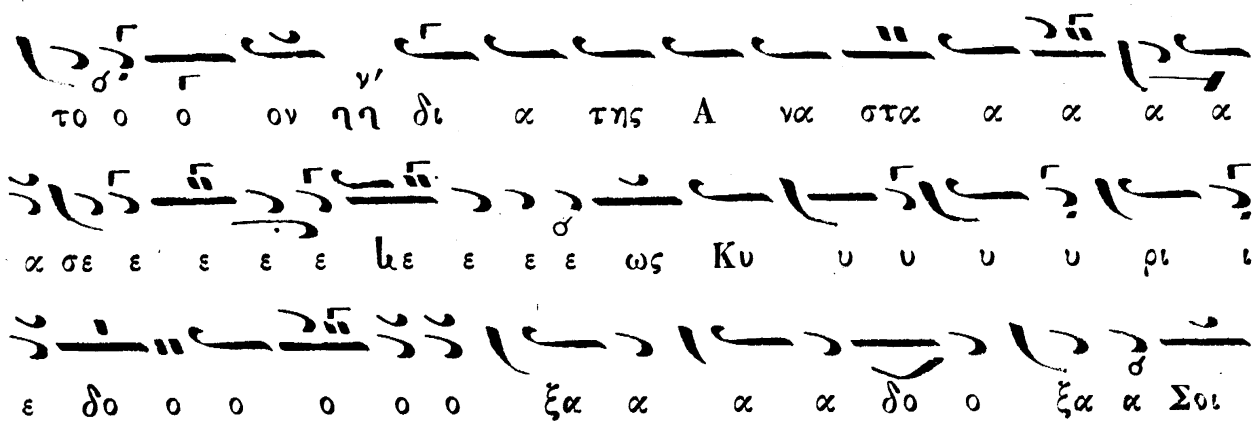 το ο ο ον ν' ηη δι α της Α να στα α α α α
α σε ε ε ε ε με ε ε ε ως Κυ υ υ υ υ ρι ι
ε δο ο ο ο ο ο ξα α α α δο ο ξα α Σοι